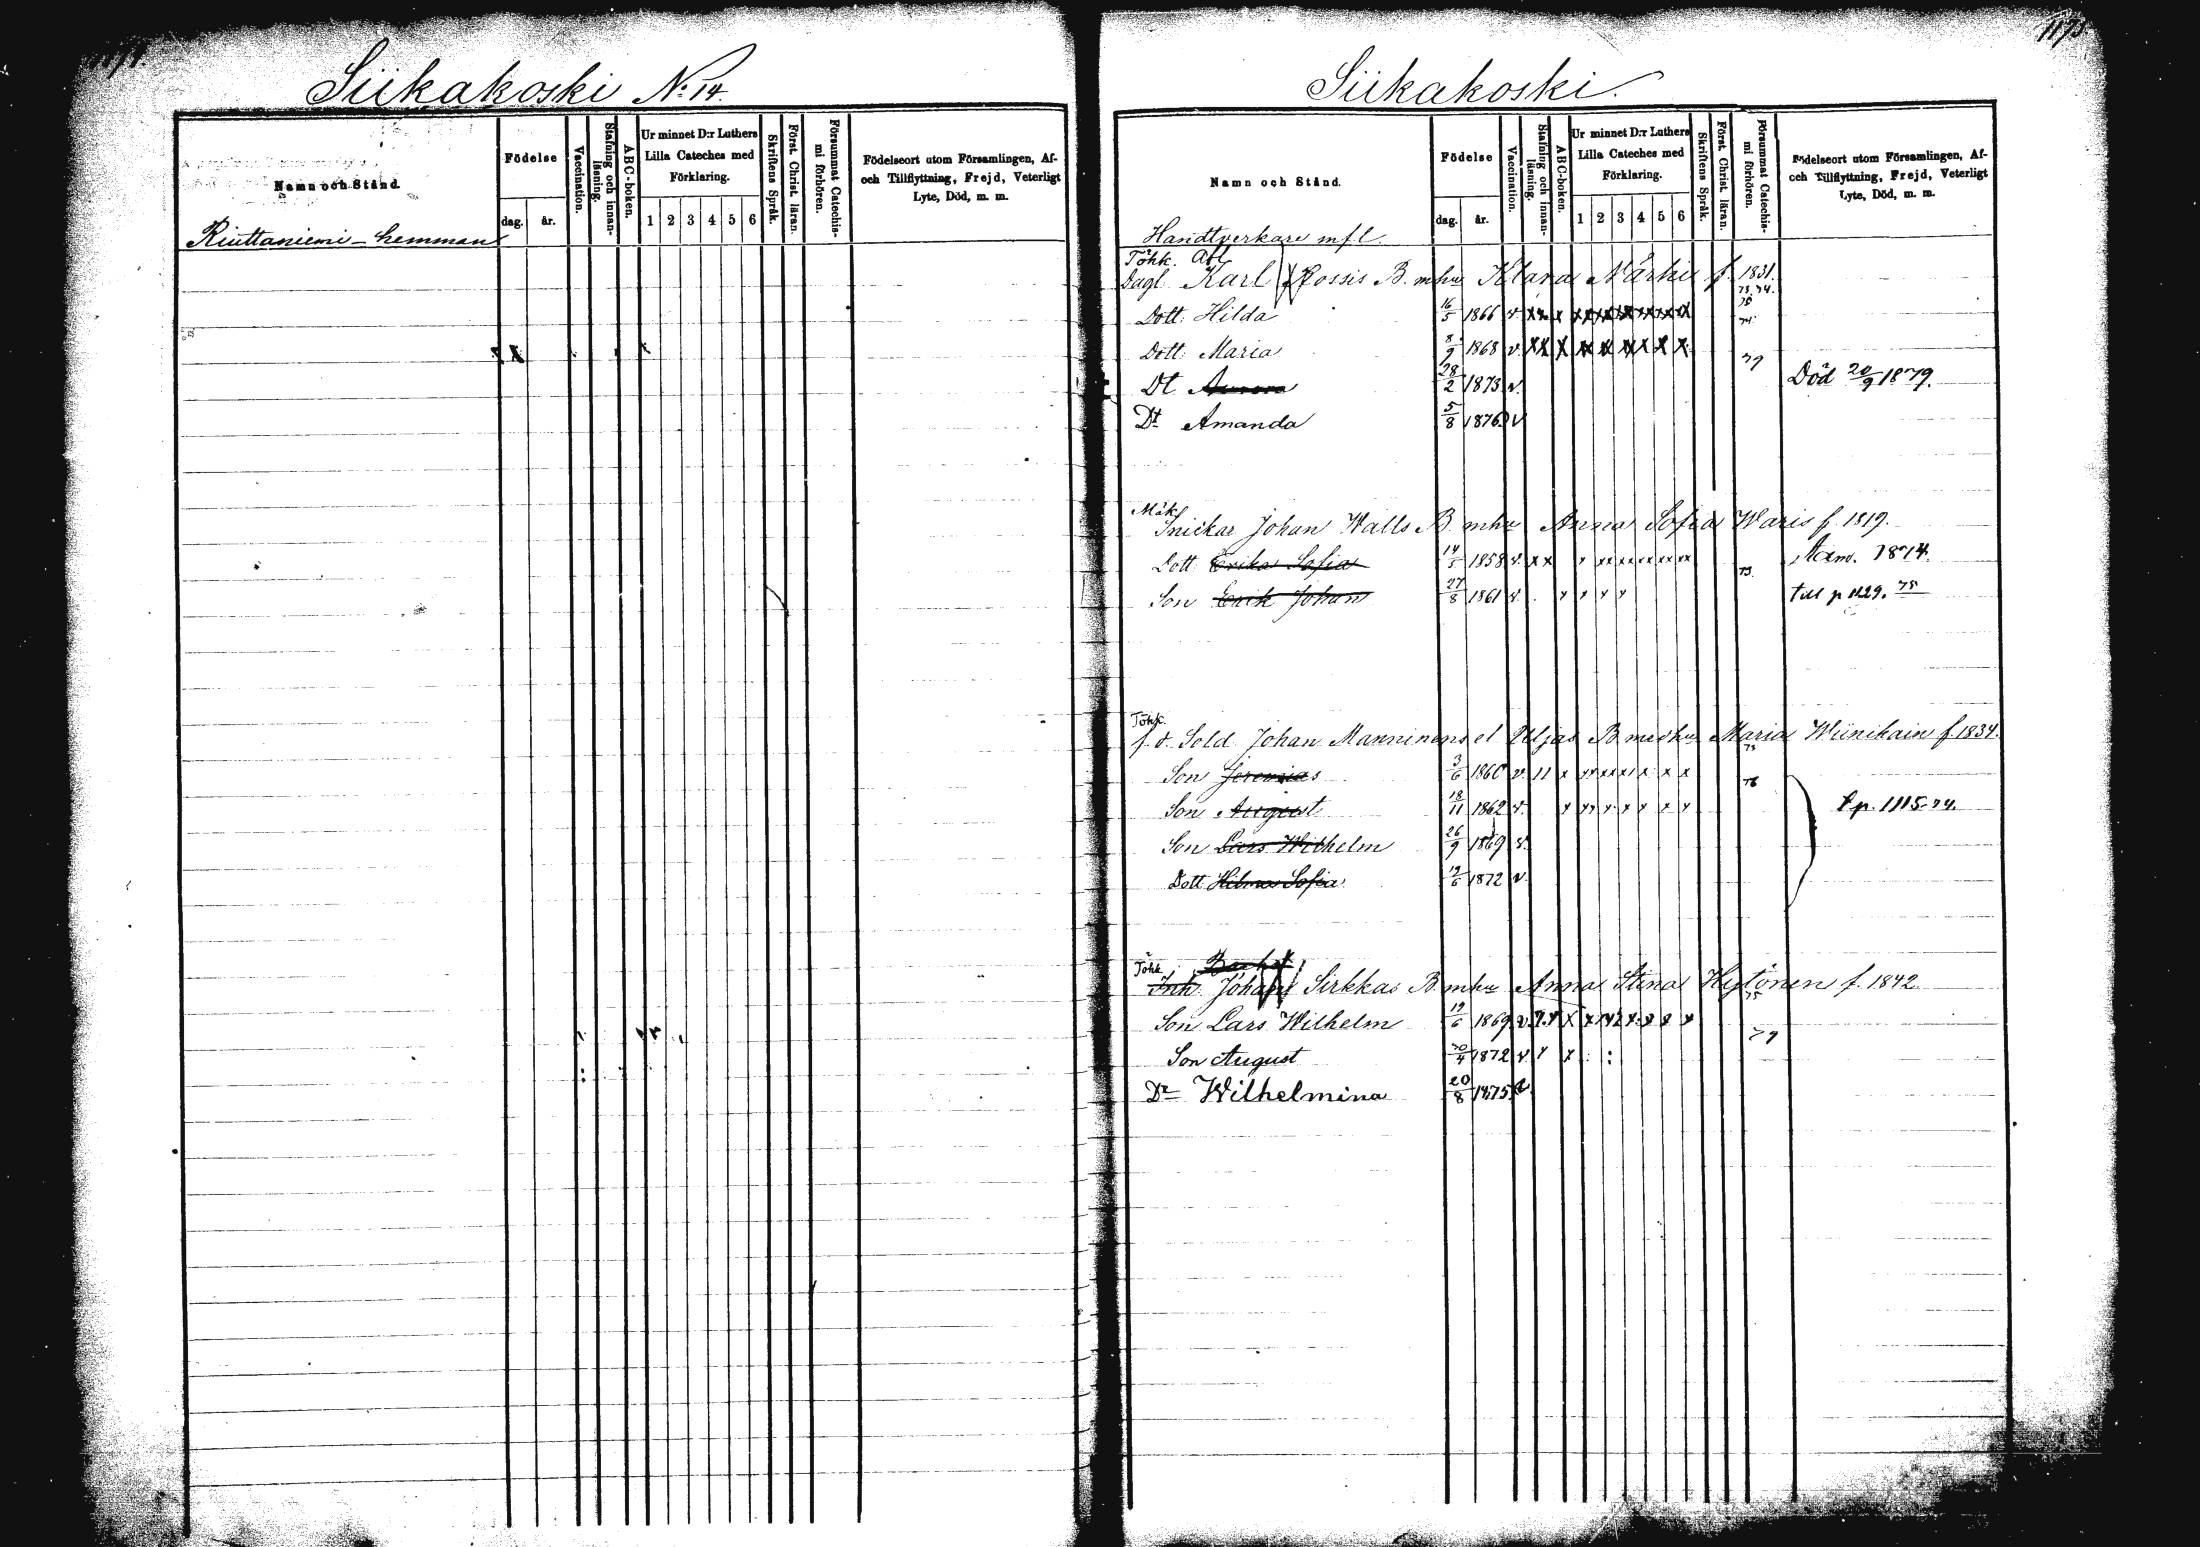 Siikakoski No 14.
Namn och Stånd.
Födelse
dag.
år.
Vaccination.
Stafning och innan-läsning.
ABC-boken.
Ur minnet D:r Luthers
Lilla Cateches med
Förklaring.
1 2 3 4 5 6
Skriftens Språk.
Först. Christ. läran.
Försummat Catechis-
mi förhören.
Födelseort utom Församlingen, Af-
och Tillflyttning, Frejd, Veterligt
Lyte, Död, m. m.
Riuttaniemi - hemman
1175.
Siikakoski.
Namn och Stånd.
Födelse
dag.
år.
Vaccination.
Stafning och innan-läsning.
ABC-boken.
Ur minnet D:r Luthers
Lilla Cateches med
Förklaring.
1 2 3 4 5 6
Skriftens Språk.
Först. Christ. läran.
Försummat Catechis-
mi förhören.
Födelseort utom Församlingen, Af-
och Tillflyttning, Frejd, Veterligt
Lyte, Död, m. m.
Handtverkare mfl.
Töhk.
Dagl Karl Rossis B. mhu Klara Närhi f. 1831.
73. 74.
75
Dott. Hilda 16/5 1866 v. x x x x x x x x x x
74.
Dott Maria 8/9 1868 v x x x x x x x x x
77
Dt Aurora 28/2 1873 v. Död 20/9 1879.
Dt Amanda 5/8 1876 v
Mäk
Snickar Johan Walls B mhu Anna Sofia Waris f. 1819.
Dott Erika Sofia 14/5 1858 v. x x x xx xx xx xx xx 1874.
73.
Son Erik Johan 27/8 1861 v. x x x x till p 1129. 75
Töhk.
f. d. Sold. Johan Manninens el Uljas B medhu Maria Wiinikain f. 1834.
73
Son Jeremias 3/6 1860 v. 11 x xx xx x x x x
76
Son August 18/11 1862 v. x xx x x x x x t p. 1115. 74.
Son Lars Wilhelm 26/9 1869 v.
Dott Hilma Sofia 12/6 1872 v.
Töhk
Inh. Johan Sirkkas B mhu Anna Stina Hytönen f. 1842.
75
Son Lars Wilhelm 19/6 1869 v. x x x x x x x x x
79
Son August 30/4 1872 v x x
Dr Wilhelmina 20/8 1875 v